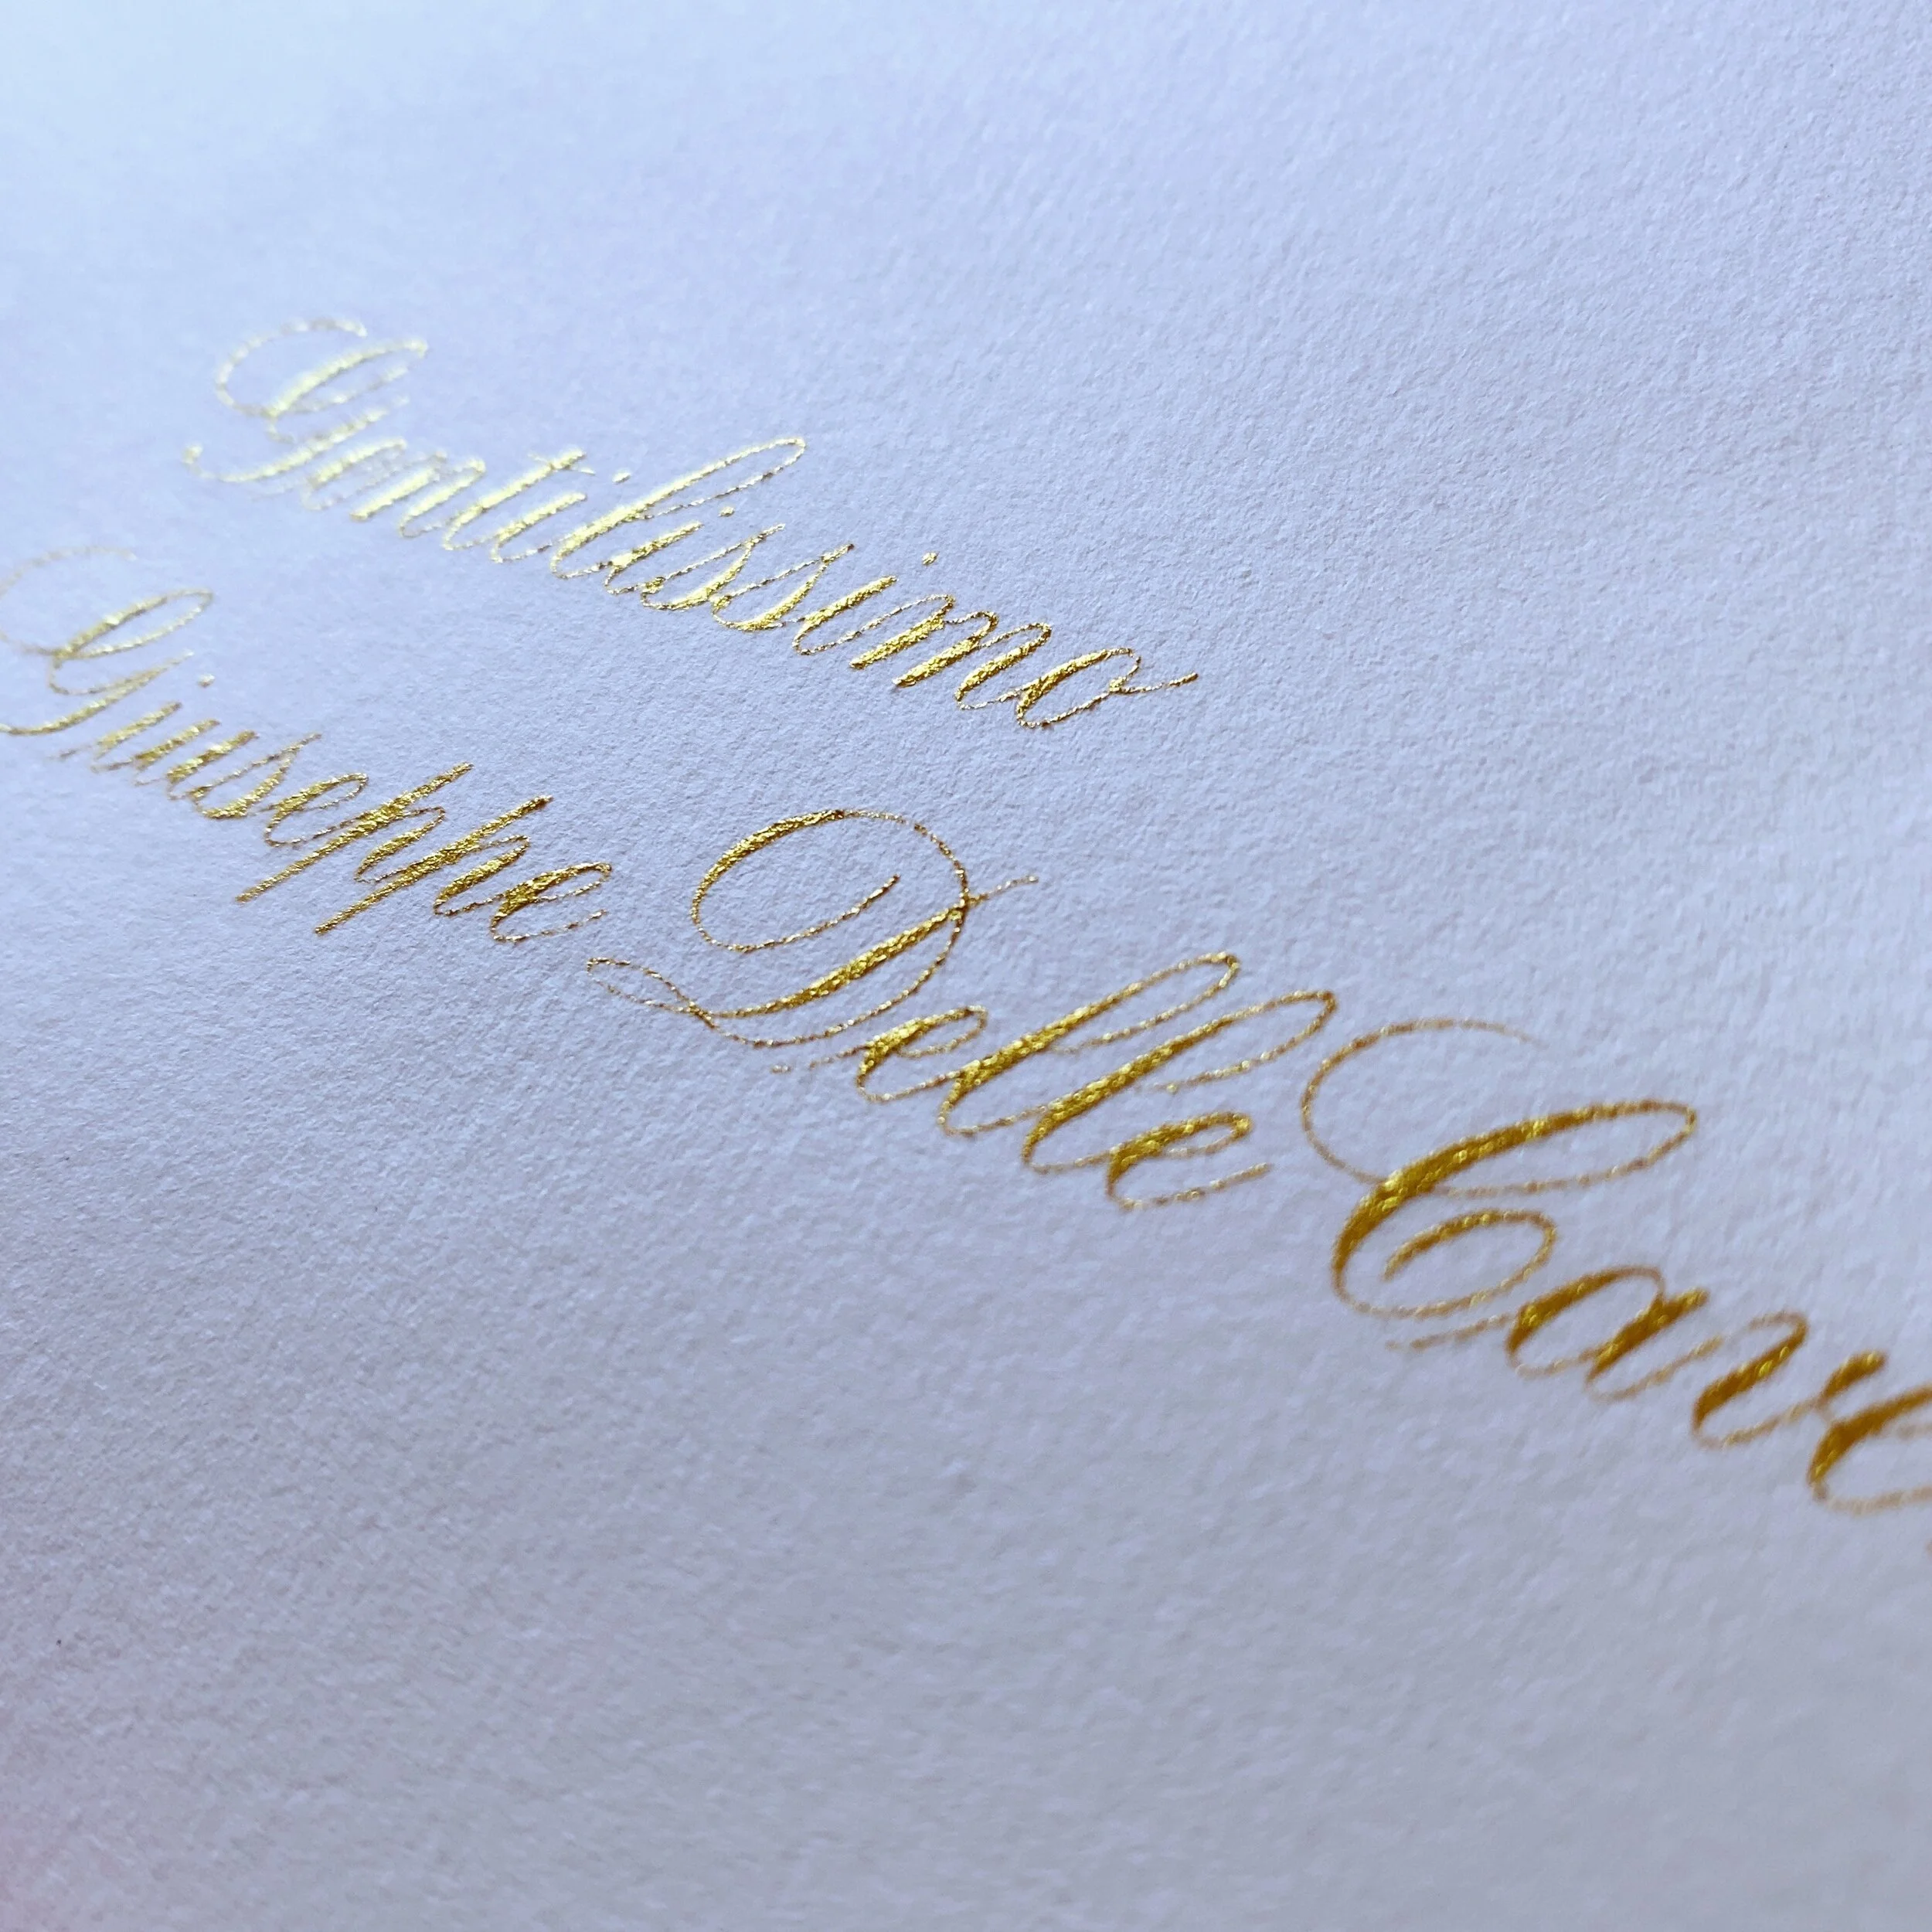 Gentilissimo
Giuseppe Delle Cave